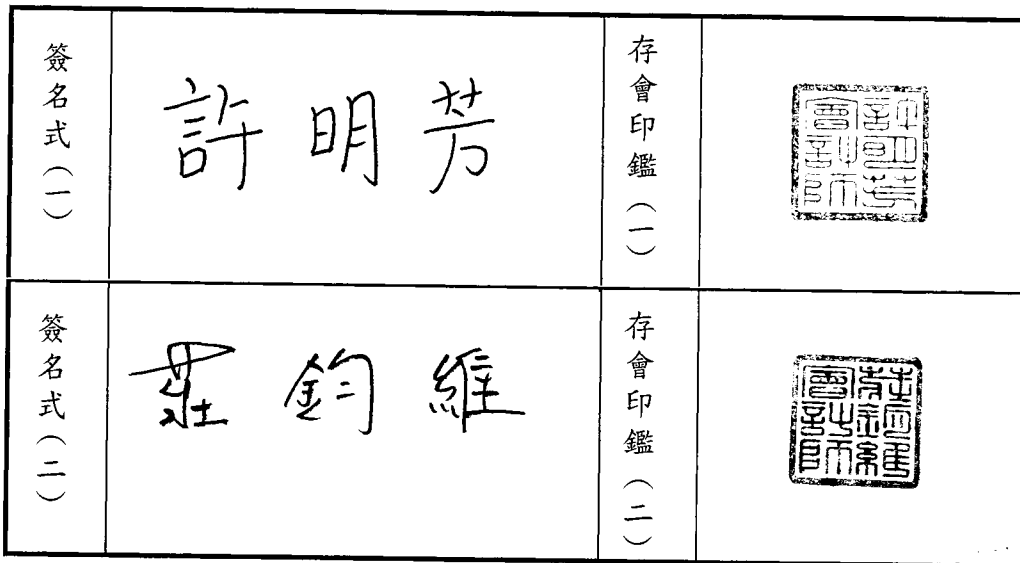 簽名式(一)
許明芳
存會印鑑(一)
許明芳會計師
簽名式(二)
莊鈞維
存會印鑑(二)
莊鈞維會計師